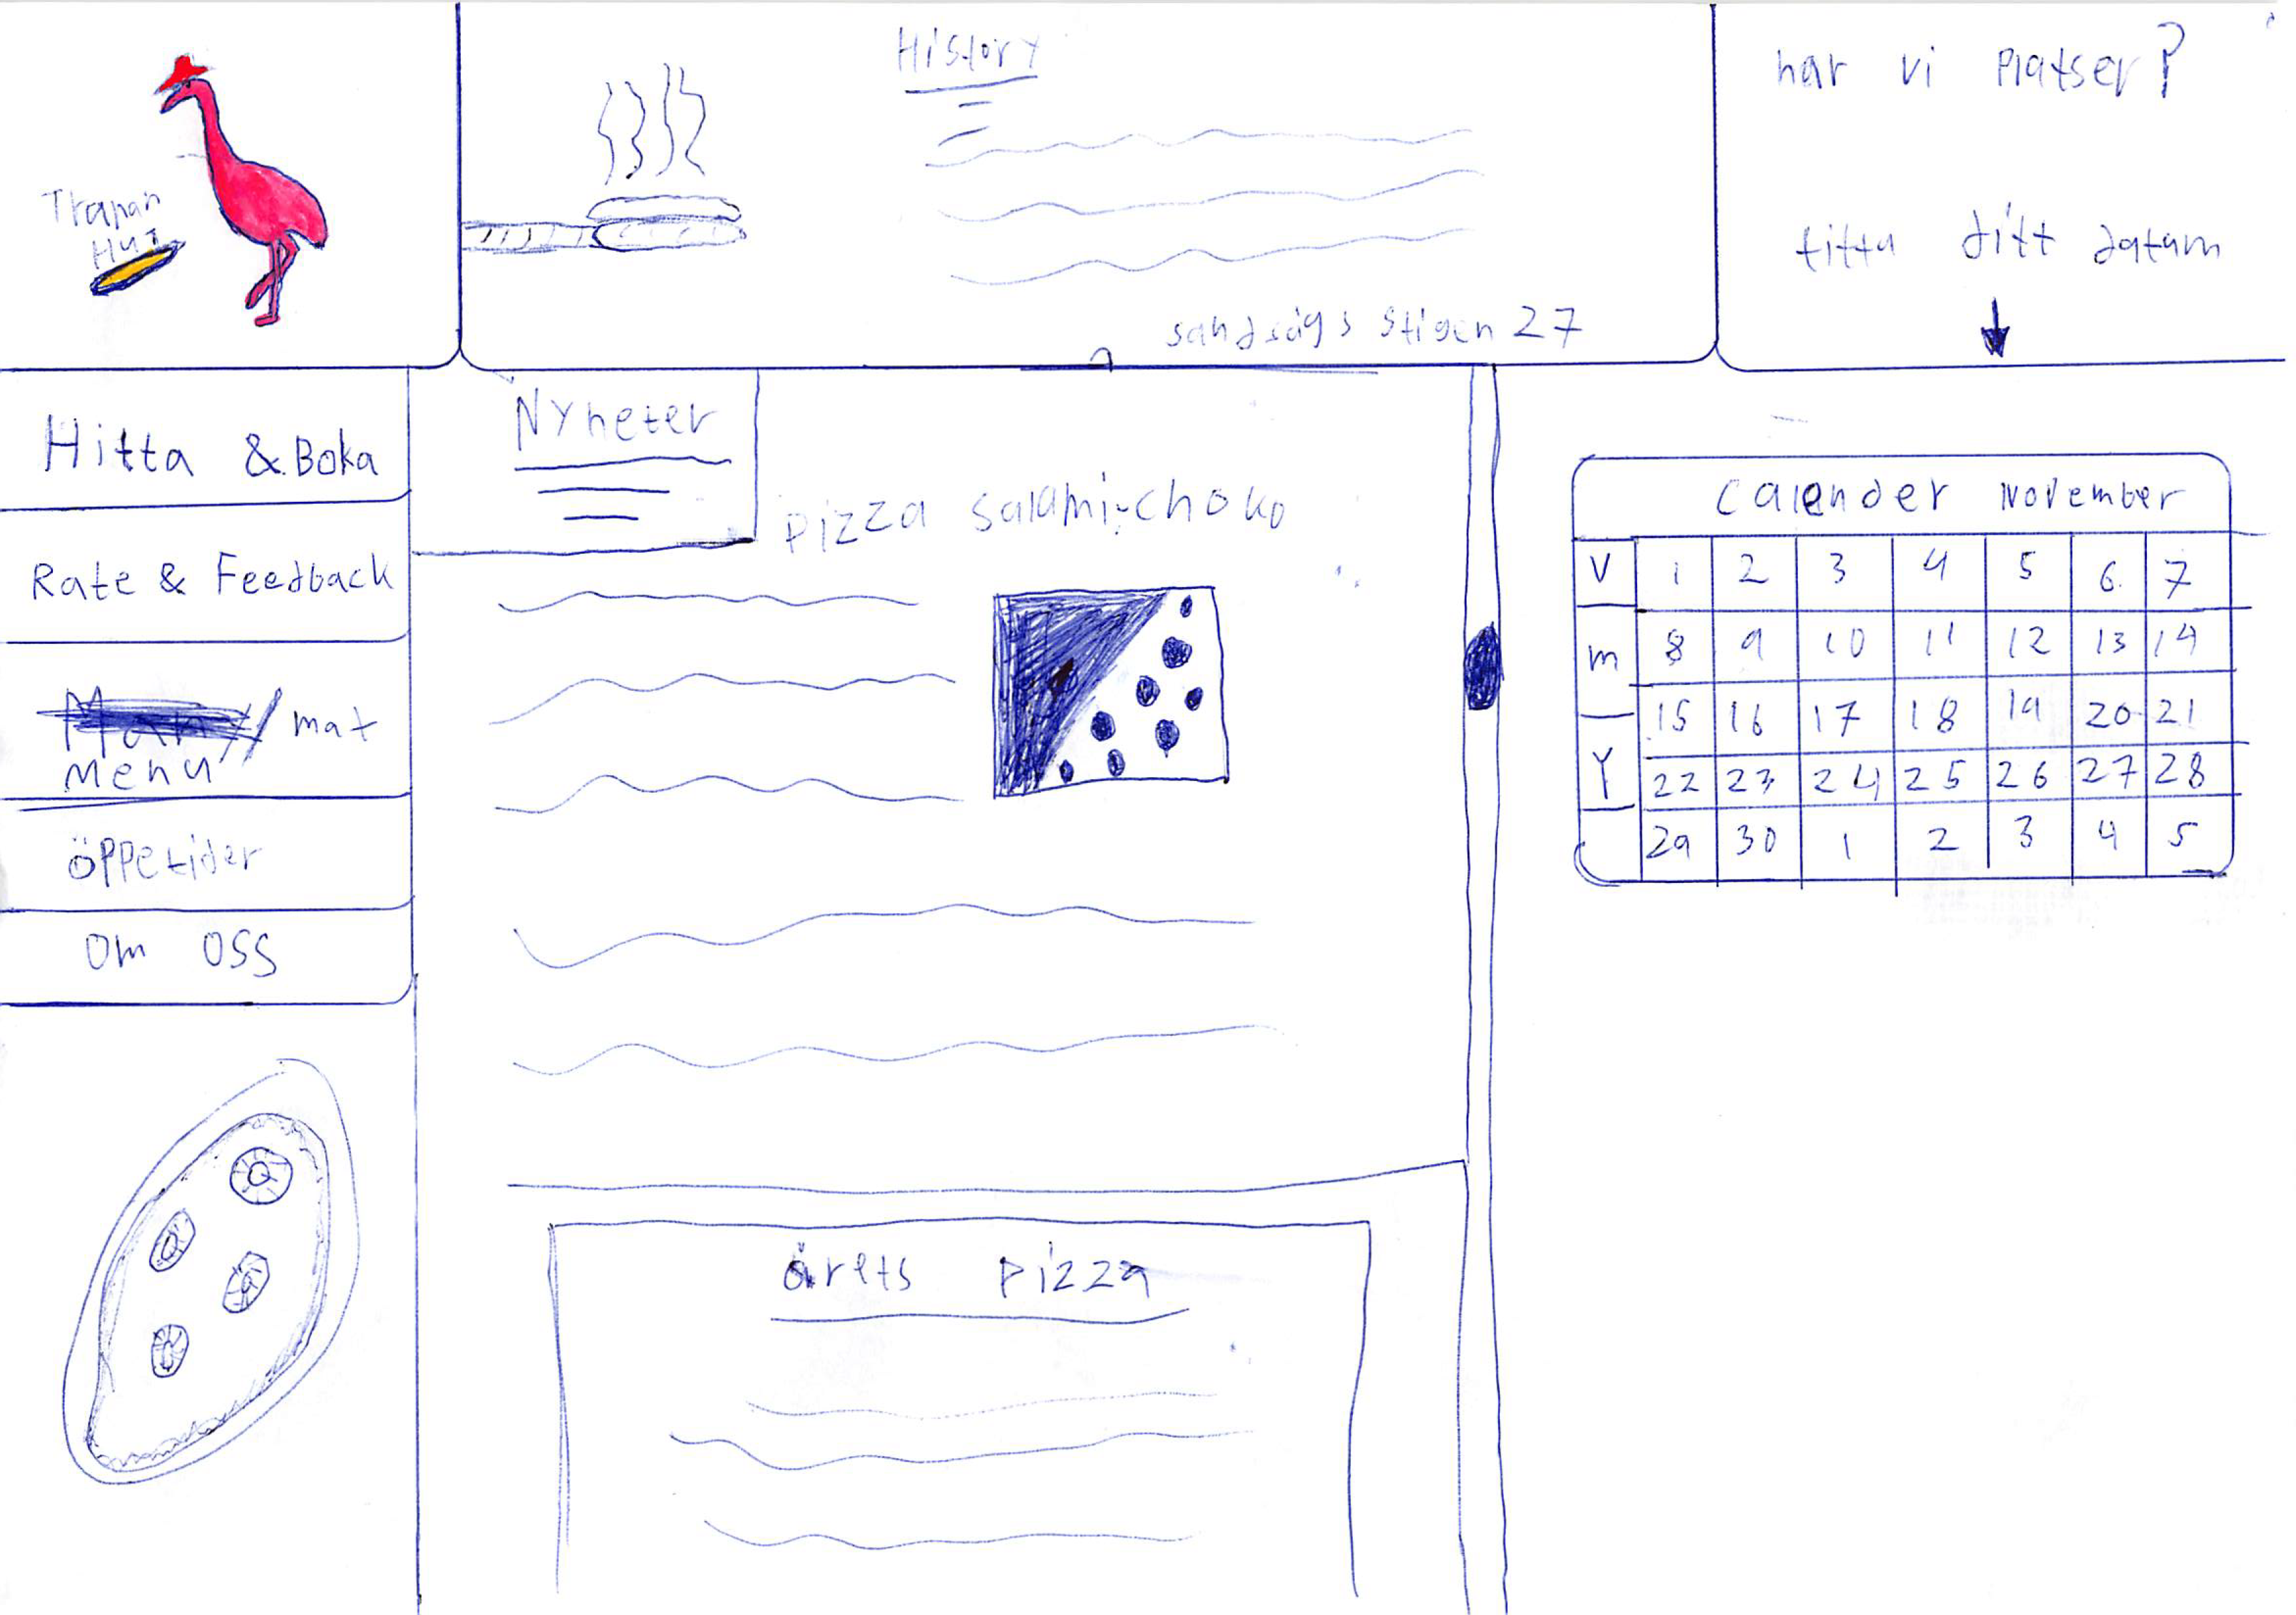 Tranan
Hut
History
sandsågs stigen 27
har vi Platser?
titta ditt datum
Hitta & Boka
Rate & Feedback
/ mat
menu
öppetider
Om oss
Nyheter
pizza salami-choko
årets pizza
Calender November
V 1 2 3 4 5 6 7
m 8 9 10 11 12 13 14
15 16 17 18 19 20 21
Y 22 23 24 25 26 27 28
29 30 1 2 3 4 5